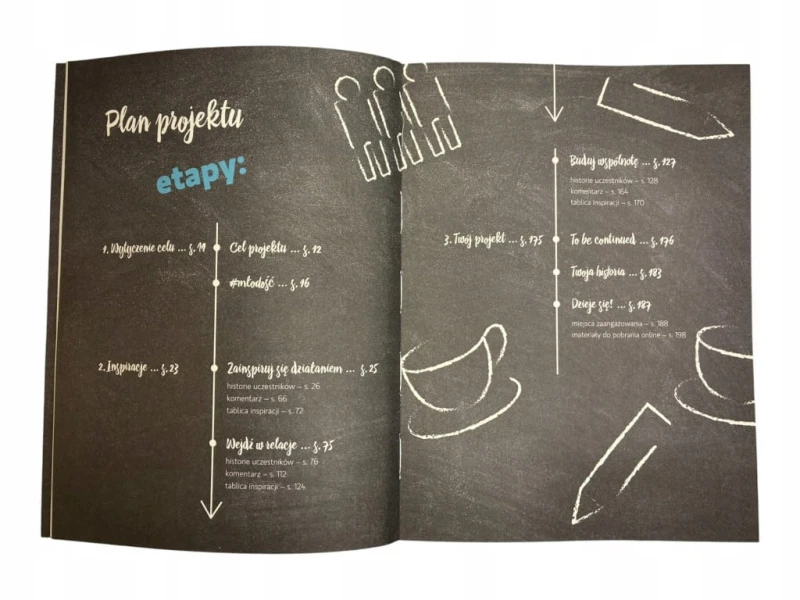 Plan projektu
etapy:
1. Wytyczenie celu ... s. 11
Cel projektu ... s. 12
#młodość ... s. 16
2. Inspiracje ... s. 23
Zainspiruj się działaniem ... s. 25
historie uczestników – s. 26
komentarz – s. 66
tablica inspiracji – s. 72
Wejdź w relacje ... s. 75
historie uczestników – s. 76
komentarz – s. 112
tablica inspiracji – s. 124
Buduj wspólnotę ... s. 127
historie uczestników – s. 128
komentarz – s. 164
tablica inspiracji – s. 170
3. Twój projekt ... s. 175
To be continued ... s. 176
Twoja historia ... s. 183
Dzieje się! ... s. 187
miejsca zaangażowania – s. 188
materiały do pobrania online – s. 198